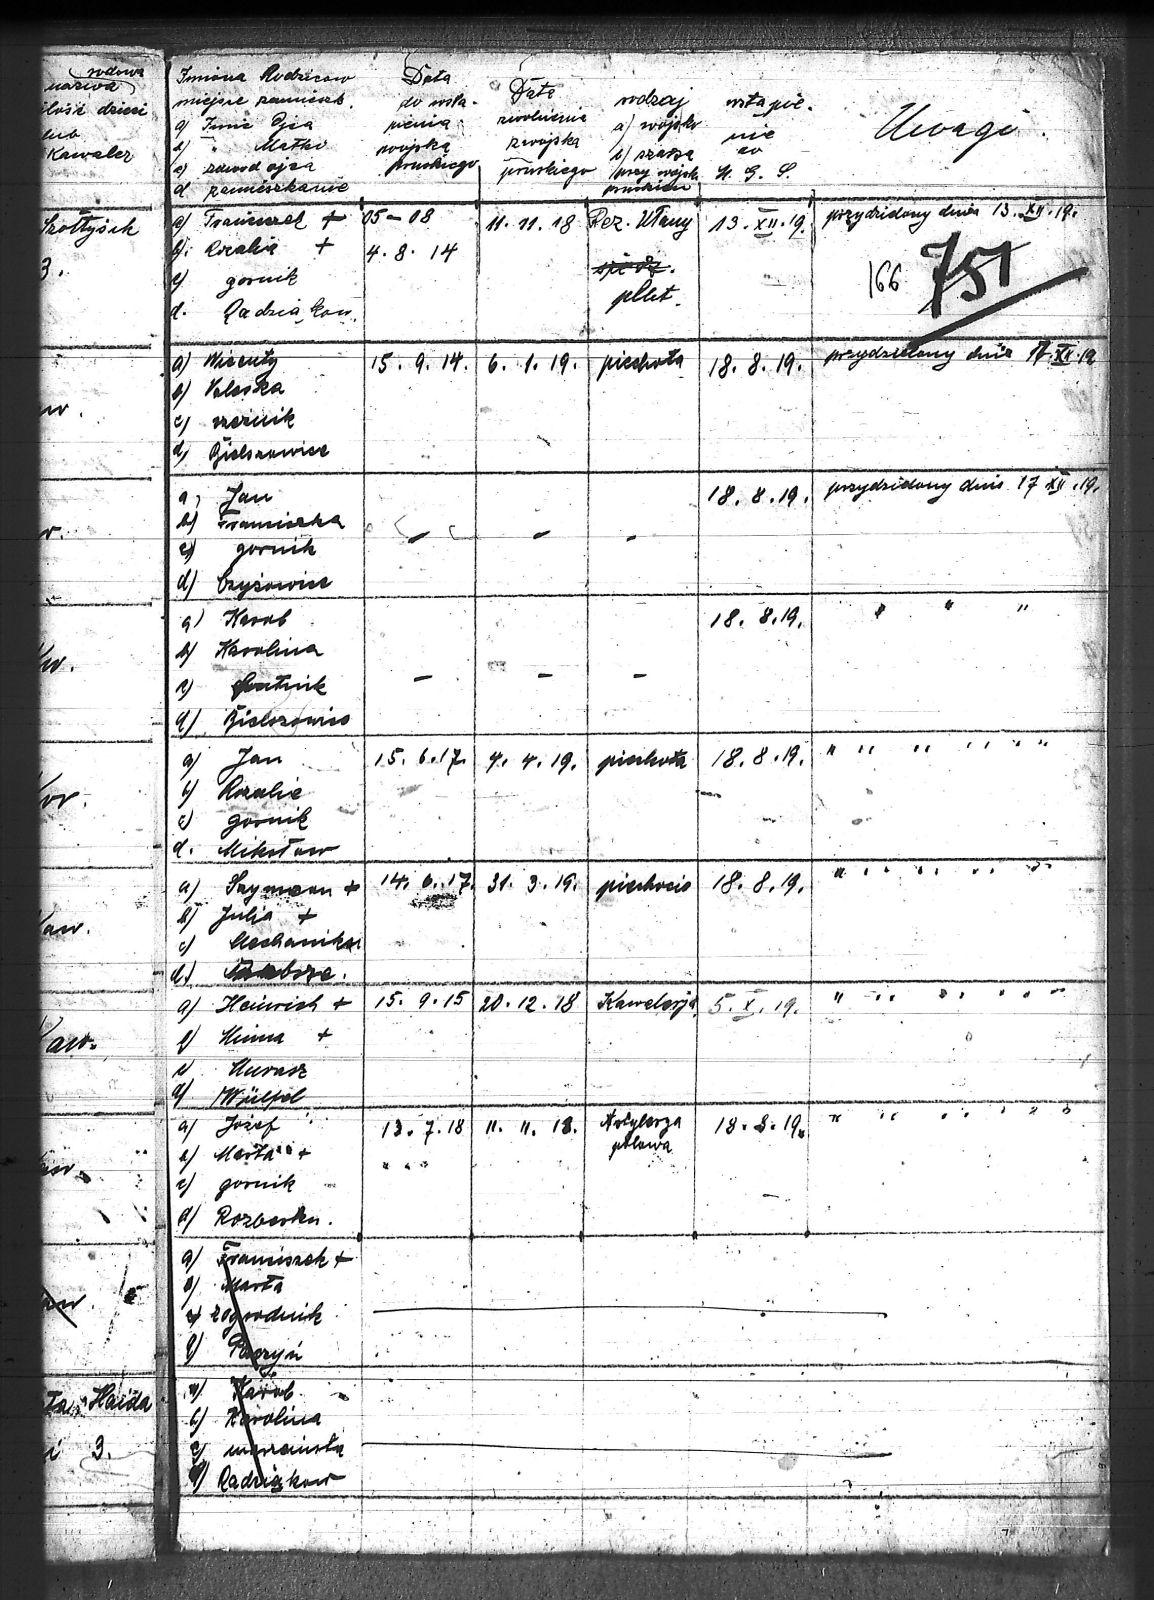 rodowe
nazwa
ilość dzieci
lub
Kawaler
Imiona Rodziców
miejsce zamieszk.
a) Imię Ojca
b) " Matki
c) zawód ojca
d. zamieszkanie
Data
do wstą-
pienia
wojska
pruskiego
Data
zwolnienia
z wojska
pruskiego
rodzaj
a) wojska
b) szarża
przy wojsk
pruskiem
wstąpie-
nie
do
H. G. S.
Uwagi.
Szołtysik
3.
a) Franciszek + 05-08 11.11.18 Rez. Ułany 13.XII.19. przydzielony dnia 13.XII.19.
b). Rozalia + 4.8.14
c) gornik plut. 166 751
d. Radzionkow
a) Wicenty 15.9.14. 6.1.19. piechota 18.8.19. przydzielony dnia 17.XII.19
b) Valeska
c)
d) Bielszowice
a) Jan 18.8.19. przydzielony dnia 17 XII.19.
b) Franciszka
c) gornik - - -
d) Czyżowice
a) Karol 18.8.19. " " "
b) Karolina
c) - - -
d) Bielszowice
a) Jan 15.6.17. 4.4.19. piechota 18.8.19. " " " " " "
b) Rozalie
c) gornik
d. Mikołow
a) Szymon + 14.6.17. 31.3.19. piechocie 18.8.19. " " " " " "
b) Julia +
c) Mechanikar
d)
Kaw.
a) Heinrich + 15.9.15 20.12.18 Kawalerja 5.X.19. " " " " " "
b) Minna +
c) Murarz
d) Wülfel
a) Józef 13.7.18 11.11.18. Artylerza 18.8.19. " " " " " "
polowa
b) Marta +
c) gornik
d) Rozbarku.
a) Franciszek +
b) Marta
c) zogrodnik
d)
Haida
i 3.
a) Karol
b) Karolina
c)
d) Radziąkow